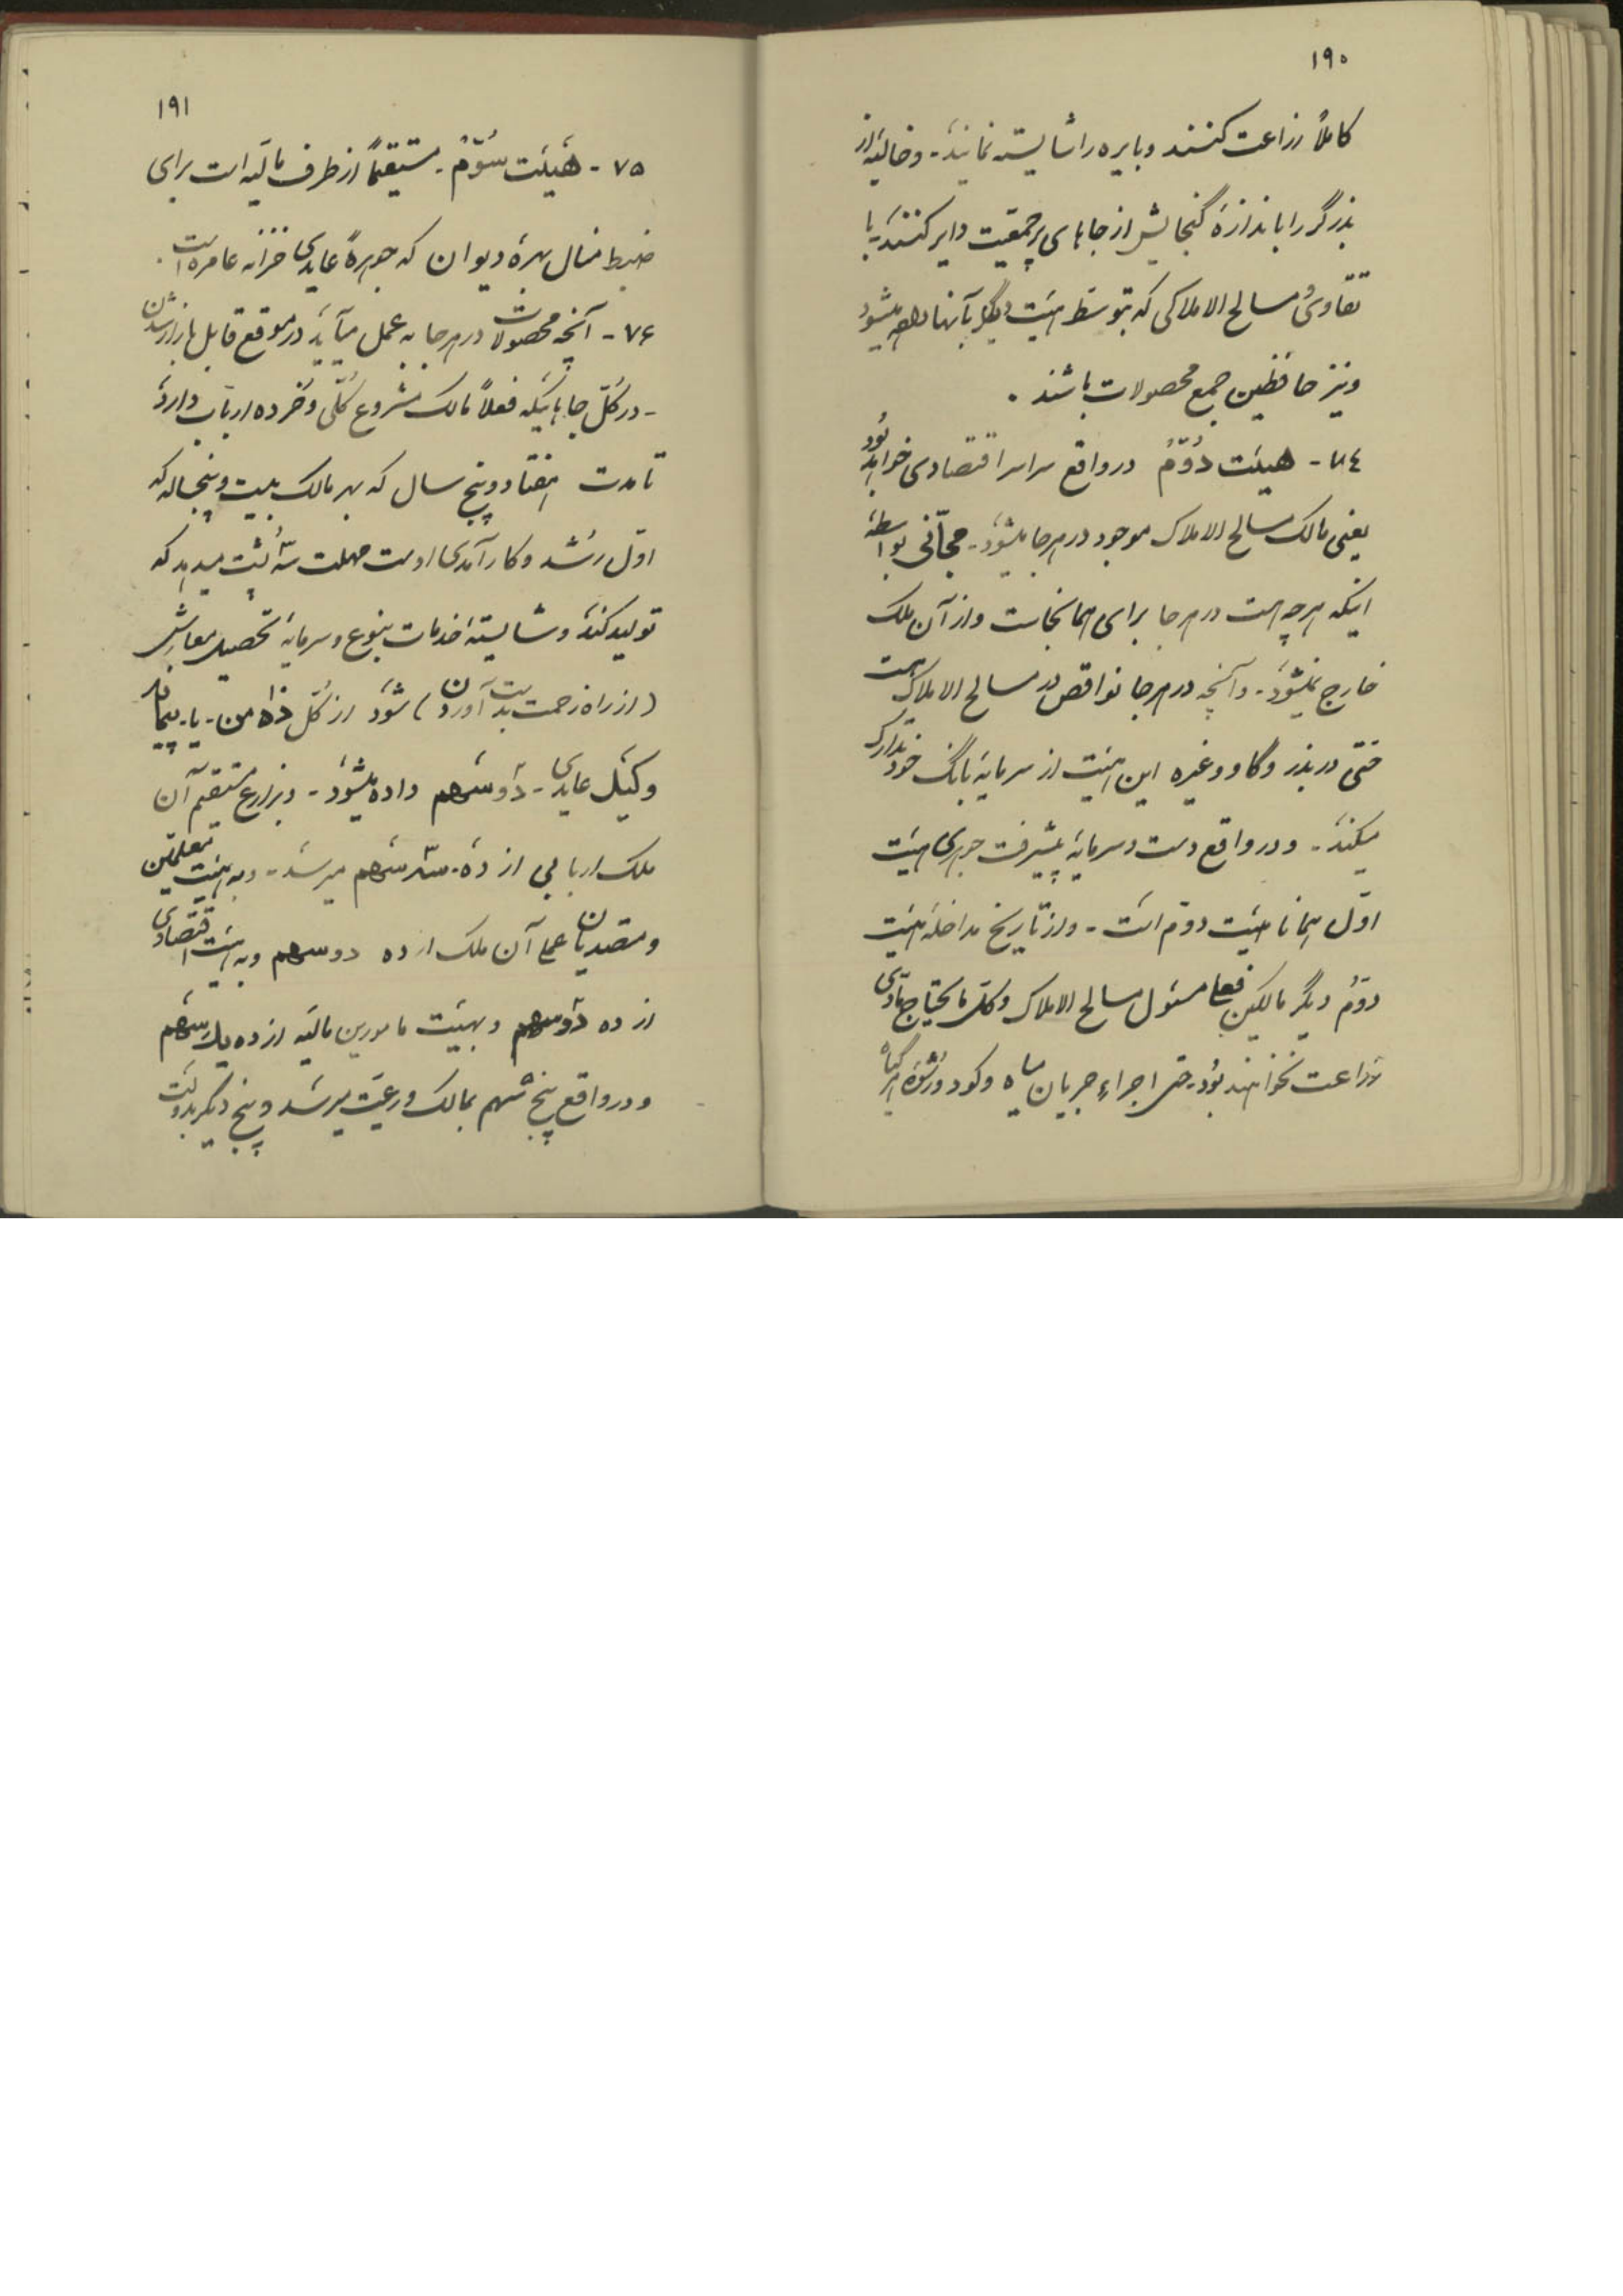 ۱۹۰
کاملاً زراعت کنند و بایره را شایسته نمایند - و خالیه از
بذرگر را باندازهٔ گنجایش از جاهای پرجمعیت دایر کنند - با
تقاوی و مسالح الاملاکی که بتوسط هیئت دیگر بآنها داده میشود
و نیز حافظین جمع محصولات باشند .
۷٤ - هیئت دوّم در واقع سراسر اقتصادی خواهد بود
یعنی مالک مسالح الاملاک موجود در هرجا میشود - مجّانی بواسطهٔ
اینکه هرچه هست در هرجا برای همانجاست و از آن ملک
خارج نمیشود - و آنچه در هرجا نواقص در مسالح الاملاک هست
حتی در بذر و گاو و غیره این هیئت از سرمایهٔ بانگ خود تدارک
میکند - و در واقع دست و سرمایهٔ پیشرفت جوهری هیئت
اوّل همانا هیئت دوّم است - و از تاریخ مداخلهٔ هیئت
دوّم دیگر مالکین فعلی مسئول مسالح الاملاک و کل مایحتاج مادّی
زراعت نخواهند بود - حتی اجراء جریان میاه و کود و رشوهٔ هر گیاه
۱۹۱
۷۵ - هیئت سوّم - مستقیماً از طرف مالیه است برای
ضبط منال بهرهٔ دیوان که جوهرهٔ عایدی خزانه عامره است .
۷۶ - آنچه محصولات در هرجا به عمل میآید در موقع قابل بازار شدن
- در کلّ جاهائیکه فعلاً مالک مشروع کلّی و خرده ارباب دارد
تا مدت هفتاد و پنج سال که بهر مالک بیست و پنجساله که
اوّل رشد و کارآمدی اوست مهلت سه پشت میدهد که
تولید کند و شایستهٔ خدمات بنوع و سرمایهٔ تحصیل معاش
(از راه زحمت بدست آوردن) شود از کلّ ده من - یا - پیمانه
و کیل عایدی - دو سهم داده میشود - و بزارع مستقیم آن
ملک اربابی از ده - سه سهم میرسد - و به هیئت معلّمین
و متصدیان عملی آن ملک از ده دو سهم و به هیئت اقتصادی
از ده دو سهم و بهیئت مامورین مالیّه از ده یک سهم
و در واقع پنج سهم بمالک و رعیّت میرسد و پنج دیگر بدولت